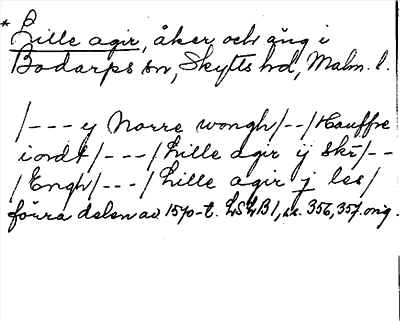 * Lille agir, åker och äng i
Bodarps sn, Skytts hd, Malm. l.
/--- y Norre wongh/--/Hauffre
iordt/---/Lille agir ij skr/--
/Engh/---/Lille agir j les/
förra delen av 1570-t. LSLB1, ss. 356, 357. orig.